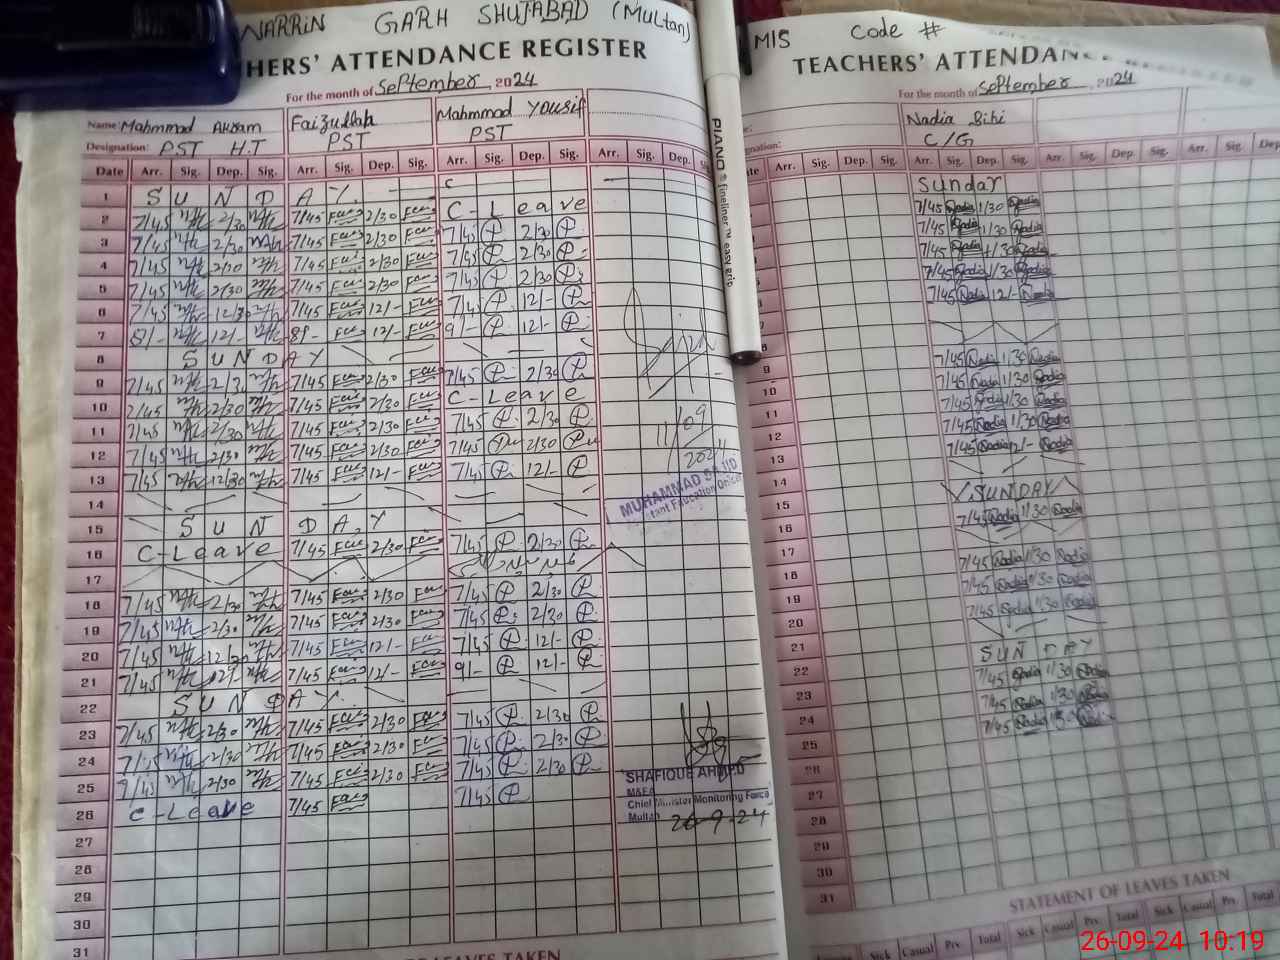 NARRIN GARH SHUJABAD (Multan)
HERS' ATTENDANCE REGISTER
For the month of September, 2024
Name: Mahmmad Akram Faizullah Mahmmad Yousif
Designation: PST H.T PST PST
Date Arr. Sig. Dep. Sig. Arr. Sig. Dep. Sig. Arr. Sig. Dep. Sig. Arr. Sig. Dep.
1 SUNDAY
2 7/45 2/30 7/45 2/30 C-Leave
3 7/45 2/30 7/45 2/30 7/45 2/30
4 7/45 2/30 7/45 2/30 7/45 2/30
5 7/45 2/30 7/45 2/30 7/45 2/30
6 7/45 12/30 7/45 12/- 7/45 12/-
7 8/- 12/- 8/- 12/- 9/- 12/-
8 SUNDAY
9 7/45 2/30 7/45 2/30 7/45 2/30
10 7/45 2/30 7/45 2/30 C-Leave
11 7/45 2/30 7/45 2/30 7/45 2/30
12 7/45 2/30 7/45 2/30 7/45 2/30
13 7/45 12/30 7/45 12/- 7/45 12/-
14
15 SUNDAY
16 C-Leave 7/45 2/30 7/45 2/30
17
18 7/45 2/30 7/45 2/30 7/45 2/30
19 7/45 2/30 7/45 2/30 7/45 2/30
20 7/45 12/30 7/45 12/- 7/45 12/-
21 7/45 12/- 7/45 12/- 9/- 12/-
22 SUNDAY
23 7/45 2/30 7/45 2/30 7/45 2/30
24 7/45 2/30 7/45 2/30 7/45 2/30
25 7/45 2/30 7/45 2/30 7/45 2/30
26 C-Leave 7/45 7/45
27
28
29
30
31
11/09
2024
MUHAMMAD SAJID
tant Education Officer
SHAFIQUE AHMED
M&EA
Chief Minister Monitoring Force
Multan
26-9-24
LEAVES TAKEN
PIANO fineliner™ easy grip
MIS Code #
TEACHERS' ATTENDANCE REGISTER
For the month of September, 2024
Nadia Bibi
C/G
Arr. Sig. Dep. Sig. Arr. Sig. Dep. Sig. Arr. Sig. Dep. Sig. Arr. Sig. Dep
Sunday
7/45 Nadia 1/30 Nadia
7/45 Nadia 1/30 Nadia
7/45 Nadia 1/30 Nadia
7/45 Nadia 1/30 Nadia
7/45 Nadia 12/- Nadia
7
8
9 7/45 Nadia 1/30 Nadia
10 7/45 Nadia 1/30 Nadia
11 7/45 Nadia 1/30 Nadia
12 7/45 Nadia 1/30 Nadia
13 7/45 Nadia 12/- Nadia
14
15 SUNDAY
16 7/45 Nadia 1/30 Nadia
17
18 7/45 Nadia 1/30 Nadia
19 7/45 Nadia 1/30 Nadia
20 7/45 Nadia 1/30 Nadia
21
22 SUNDAY
23 7/45 Nadia 1/30 Nadia
24 7/45 Nadia 1/30 Nadia
25 7/45 Nadia 1/30 Nadia
26
27
28
29
30
31
STATEMENT OF LEAVES TAKEN
Sick Casual Prv. Total Sick Casual Prv. Total Sick Casual Prv. Total
26-09-24 10:19